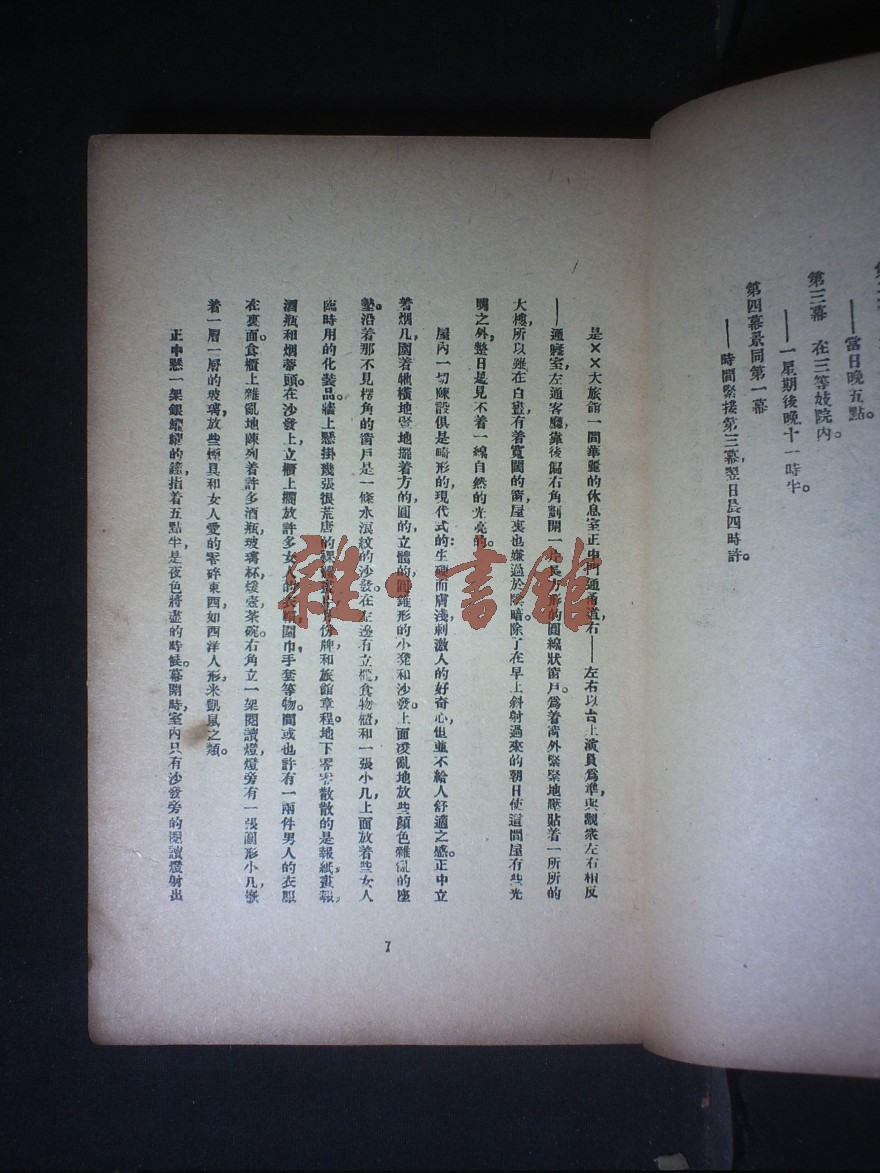 ——當日晚五點。
第三幕 在三等妓院內。
——一星期後晚十一時半。
第四幕景同第一幕
——時間緊接第三幕，翌日晨四時許。
是××大旅館一間華麗的休息室，正中門通甬道，右——左右以台上演員爲準，與觀衆左右相反
——通寢室，左通客廳，靠後偏右角劃開一片長方形的圓線狀窗戶。爲着窗外緊緊地壓貼着一所所的
大樓，所以雖在白晝，有着寬闊的窗，屋裏也嫌過於陰暗。除了在早上斜射過來的朝日使這間屋有些光
明之外，整日是見不着一線自然的光亮的。
屋內一切陳設俱是畸形的，現代式的；生硬而膚淺，刺激人的好奇心，但並不給人舒適之感。正中立
着烟几，圍着牠橫地豎地擺着方的，圓的，立體的，圓錐形的小凳和沙發。上面凌亂地放些顏色雜亂的座
墊。沿着那不見稜角的窗戶是一條水浪紋的沙發。在左邊有立櫃，食物櫃和一張小几，上面放着些女人
臨時用的化裝品。牆上懸掛幾張很荒唐的裸體 份牌和旅館章程。地下零零散散的是報紙，畫報，
酒瓶和烟蒂頭。在沙發上，立櫃上擱放許多女人的衣帽，圍巾，手套等物。間或也許有一兩件男人的衣服
在裏面。食櫃上雜亂地陳列着許多酒瓶，玻璃杯，煖壺，茶碗。右角立一架閱讀燈，燈旁有一張圓形小几，嵌
着一層一層的玻璃，放些煙具和女人愛的零碎東西，如西洋人形，米凱鼠之類。
正中懸一架銀熠熠的鐘，指着五點半，是夜色將盡的時候。幕開時，室內只有沙發旁的閱讀燈射出
7
雜·書館